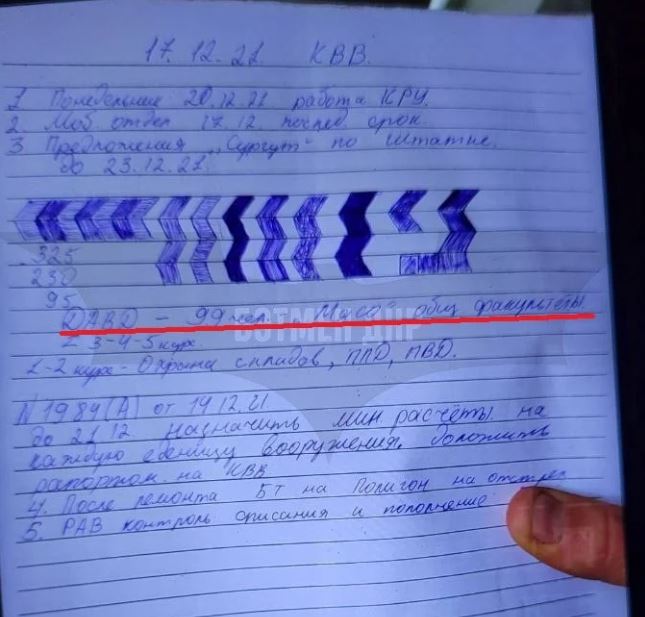 17.12.21 КВВ.
1 Понедельник 20.12.21 работа КРУ.
2. Моб. отдел 17.12. послед срок.
3 Предложения „Сургут" по штатке.
до 23.12.21.
325
230
95
DABD – 99 чел. „Мясо" общ факультеты
3-4-5 курс.
1-2 курс - Охрана складов, ППД, ПВД.
N 1984(А) от 14.12.21
до 21.12 назначить мин. расчёты на
каждую единицу вооружения. Доложить
рапортом на КВВ
4. После ремонта БТ на Полигон на отстрел
5. РАВ контроль списания и пополнение
БЭТМЕН ДНР